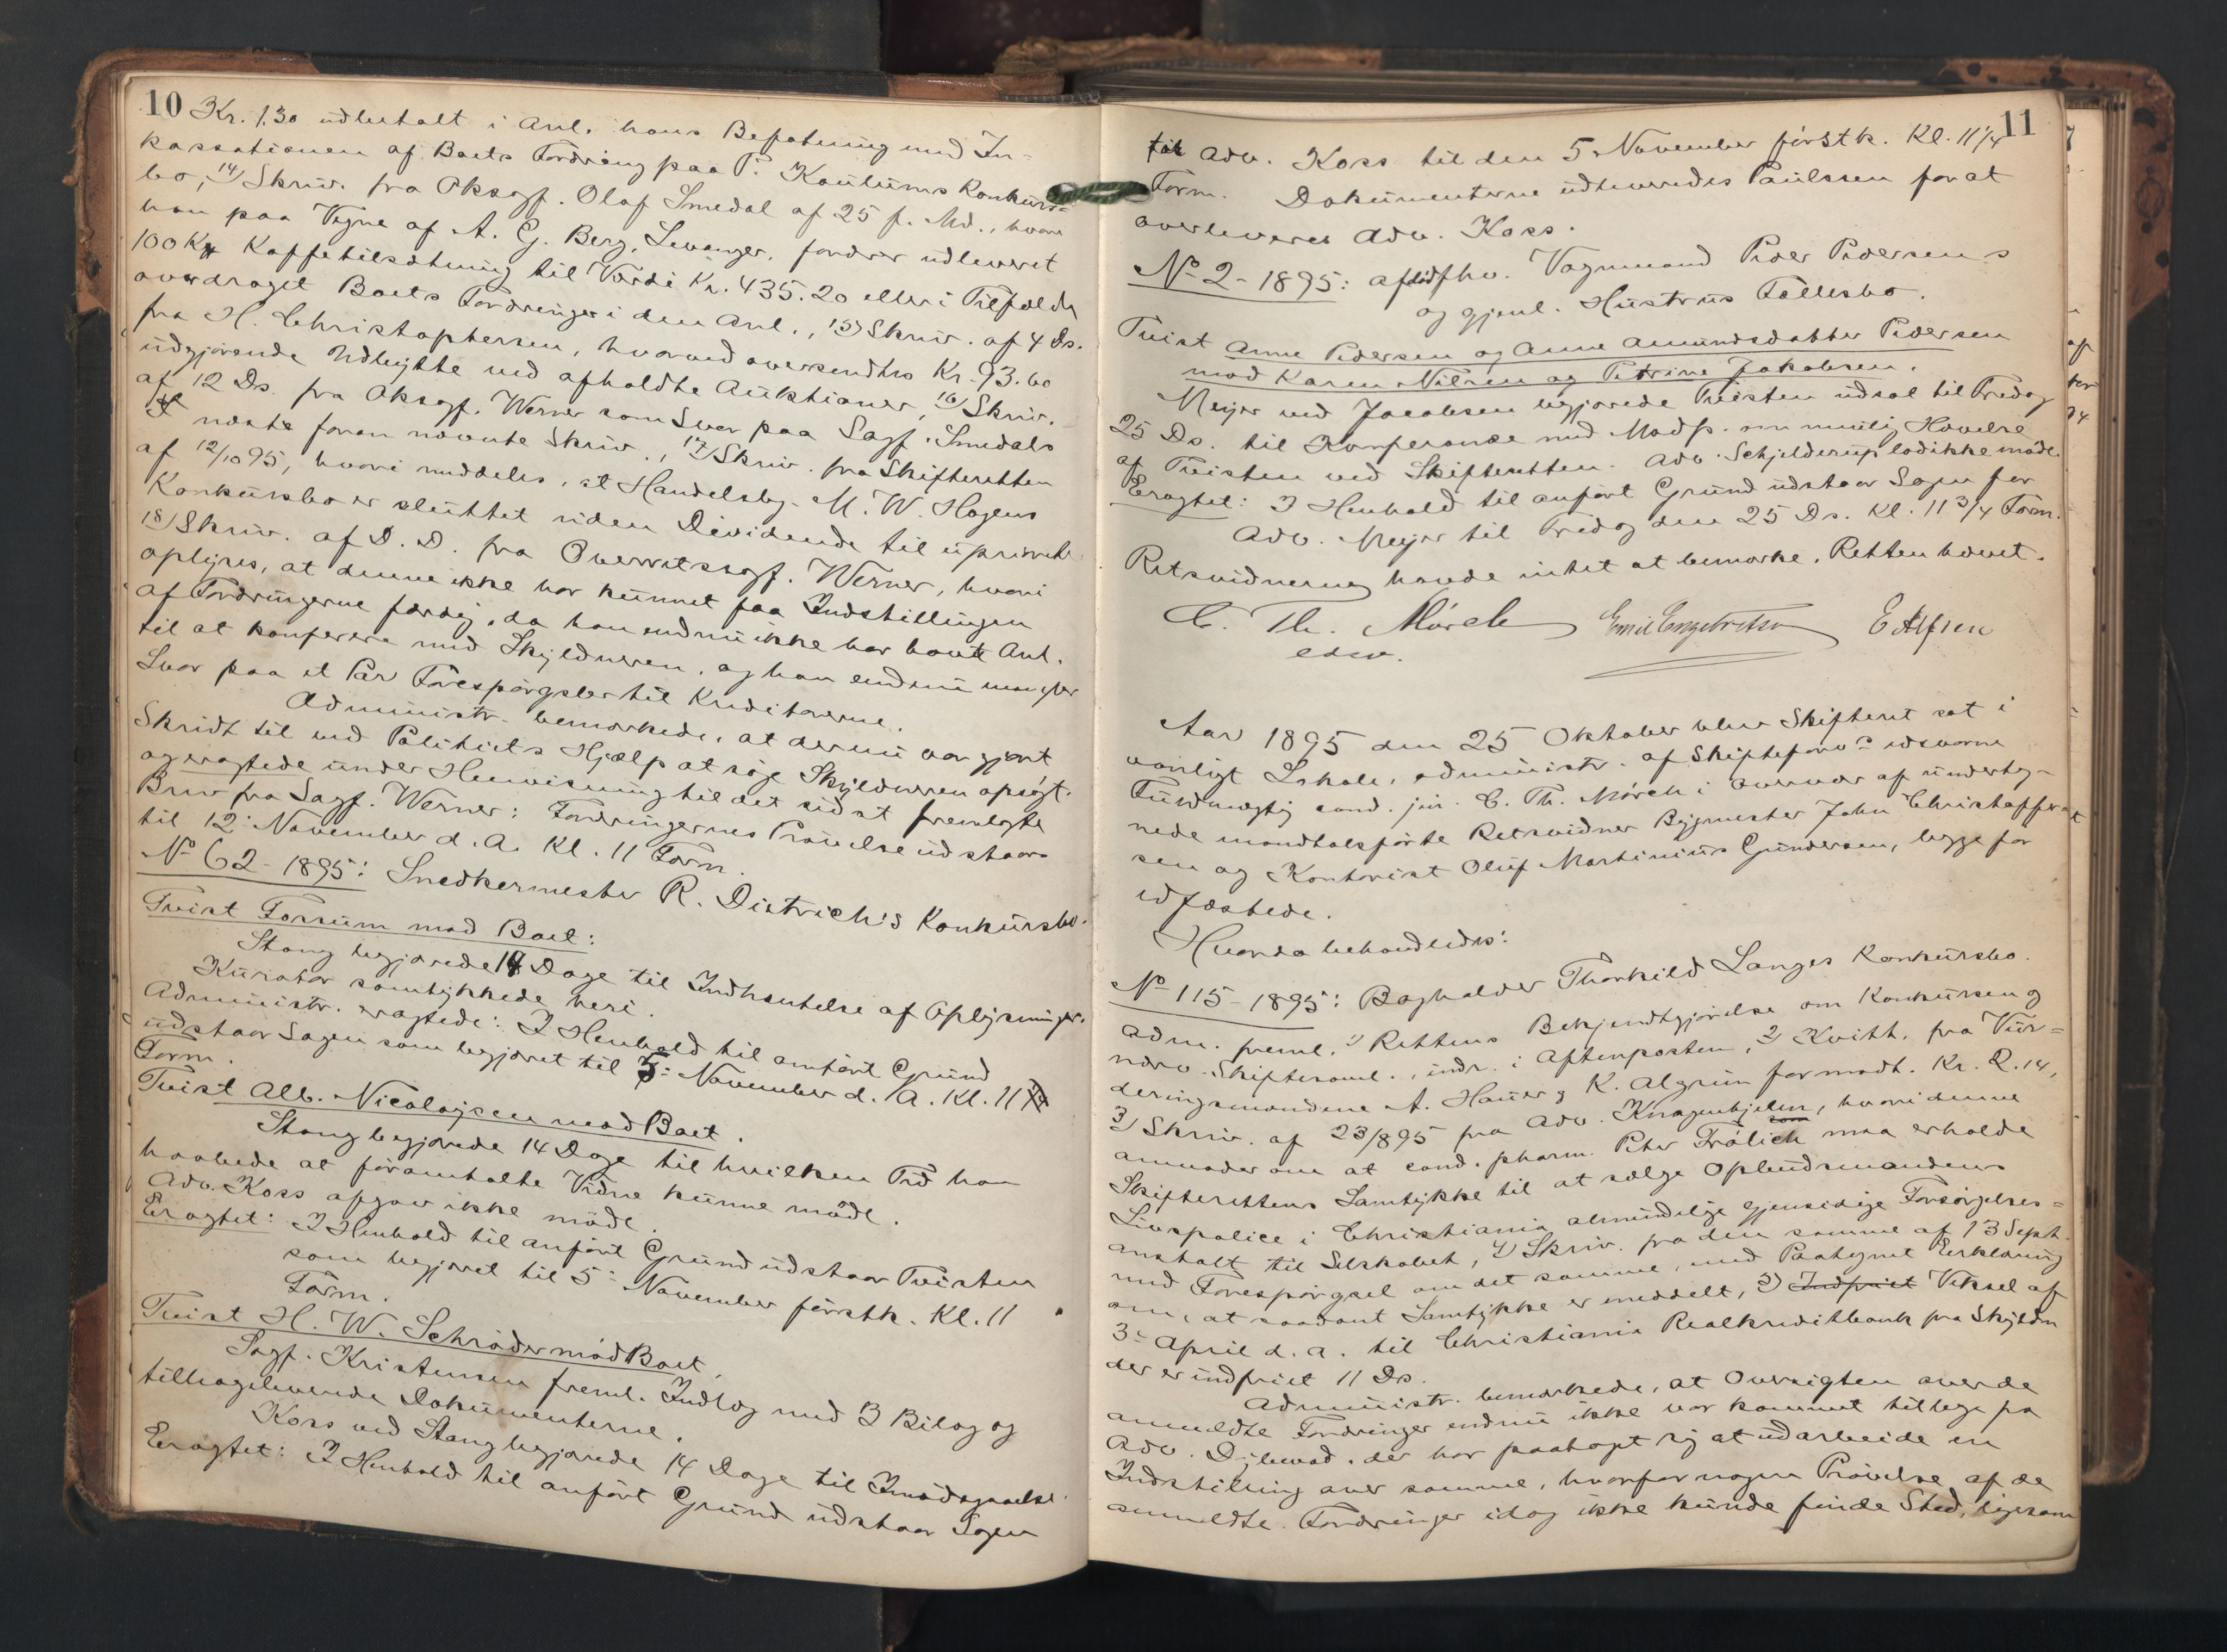 10
Kr. 1.30 udbetalt i Anl. hans Befatning med In-
kassationen af Boets Fordring paa P. Kaulums Konkurs-
bo, 14) Skriv. fra Oksagf. Olaf Smedal af 25 f. Md., hvori
han paa Vegne af A. G. Berg, Levanger, fordrer udleveret
100 Kg Kaffetilsætning til Værdi Kr. 435.20 eller i Tilfælde
overdraget Boets Fordringer i den Anl., 15) Skriv. af 4 Ds.
fra H. Christophersen, hvorved oversendtes Kr. 93.60
udgjørende Udbytte ved afholdte Auktioner, 16) Skriv.
af 12 Ds. fra Oksagf. Werner som Svar paa Sagf. Smedals
næste foran nævnte Skriv., 17) Skriv. fra Skifteretten
af 12/10 95, hvori meddeles, at Handelsbg. M. W. Hagens
Konkursbo er sluttet uden Dividende til uprivil.
18) Skriv. af D. D. fra Overretssagf. Werner, hvori
oplyses, at denne ikke har kunnet faa Indstillingen
af Fordringerne færdig, da han endnu ikke har havt Anl.
til at konferere med Skyldneren, og han endnu mangler
Svar paa et Par Forespørgsler til Kreditorerne.
Administr. bemærkede, at der nu var gjort
Skridt til ved Politiets Hjælp at søge Skyldneren opsøgt.
og eragtede under Henvisning til det sidst fremlagte
Brev fra Sagf. Werner: Fordringernes Prøvelse udstaar
til 12 November d. A. Kl. 11 Form.
No 62 - 1895: Snedkermester R. Districh's Konkursbo.
Tvist Forsum mod Boet:
Stang begjærede 14 Dage til Indhentelse af Oplysninger.
Kurator samtykkede heri.
Administr. eragtede: I Henhold til anført Grund
udstaar Sagen som begjæret til 5 November d. A. Kl. 11
Form.
Tvist Alb. Nicolaysen mod Boet.
Stang begjærede 14 Dage til hvilken Tid han
haabede at foranholte Vidne kunne møde.
Adv. Koss afgav ikke møde.
Eragtet: I Henhold til anført Grund udstaar Tvisten
som begjæret til 5 November førstk. Kl. 11
Form.
Tvist H. W. Schrøder mod Boet.
Sagf. Kristensen freml. Indlæg med 3 Bilag og
tilbageleverede Dokumenterne.
Koss ved Stang begjærede 14 Dage til Imødegaaelse.
Eragtet: I Henhold til anført Grund udstaar Sagen
11
for Adv. Koss til den 5 November førstk. Kl. 11 1/4
Form. Dokumenterne udleveredes Paulssen for at
overleveres Adv. Koss.
No 2 - 1895: afdøde fhv. Vognmand Peder Pedersens
og gjenl. Hustrus Fællesbo.
Tvist Anne Pedersen og Anne Amundsdatter Pedersen
mod Karen Nilsen og Petrine Jakobsen.
Meyer ved Jacobsen begjærede Tvisten udsat til Fredag
25 Ds. til Konferance med Modp. om mulig Hævelse
af Tvisten ved Skifteretten. Adv. Schjelderup lod ikke møde.
Eragtet: I Henhold til anført Grund udstaar Sagen for
Adv. Meyer til Fredag den 25 Ds. Kl. 11 3/4 Form.
Retsvidnerne havde intet at bemærke. Retten hævet.
C. Th. Mørch Emil Engebretsen E Alfsen
edsv.
Aar 1895 den 25 Oktober blev Skifteret sat i
vanligt Lokale, administr. af Skifteforv.s edsvorne
Fuldmægtig cand. jur. C. Th. Mørch i Overvær af underteg-
nede mandtalsførte Retsvidner Bygmester John Christoffer-
sen og Kontorist Oluf Martinius Gundersen, begge for
edfæstede.
Hvorda behandledes:
No 115 - 1895: Bogholder Thorkild Langes Konkursbo.
Adm. freml. 1) Rettens Bekjendtgjørelse om Konkursen og
nærv. Skiftesaml., indr. i Aftenposten, 2) Kvitt. fra Vur-
deringsmændene A. Hauer og K. Algrun for modt. Kr. 2.14,
3) Skriv. af 23/8 95 fra Adv. Knagenhjelm, hvori denne
anmoder om at cand. pharm. Peter Frølich maa erholde
Skifterettens Samtykke til at sælge Opbudsmandens
Livspolice i Christiania almindelige gjensidige Forsørgelses-
anstalt til Selskabet, 4) Skriv. fra den samme af 13 Sept.
med Forespørgsel om det samme, med Paategnet Erklæring
om, at saadant Samtykke er meddelt, 5) Indfriet Veksel af
3 April d. a. til Christiania Realkreditbank fra Skyldn
der er indfriet 11 Ds.
Administr. bemærkede, at Oversigten over de
anmeldte Fordringer endnu ikke var kommet tilbage fra
Adv. Dybwad, der har paataget sig at udarbeide en
Indstilling over samme, hvorfor nogen Prøvelse af de
anmeldte Fordringer idag ikke kunde finde Sted, ligesom